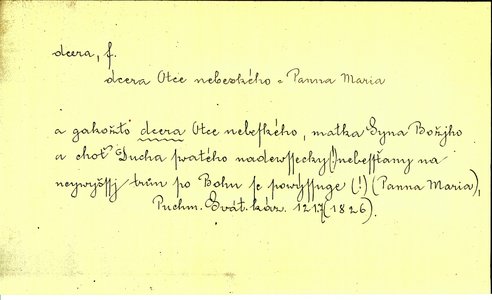 dcera, f.
dcera Otce nebeského = Panna Maria
a gakožto dcera Otce nebeſkého, matka Syna Božjho
a choť Ducha ſwatého nadewſſecky(!) nebeſſťany na
neywyšſſj trůn po Bohu ſe powýſſuge (!) (Panna Maria),
Puchm. Svát. káz. 1217 (1826).